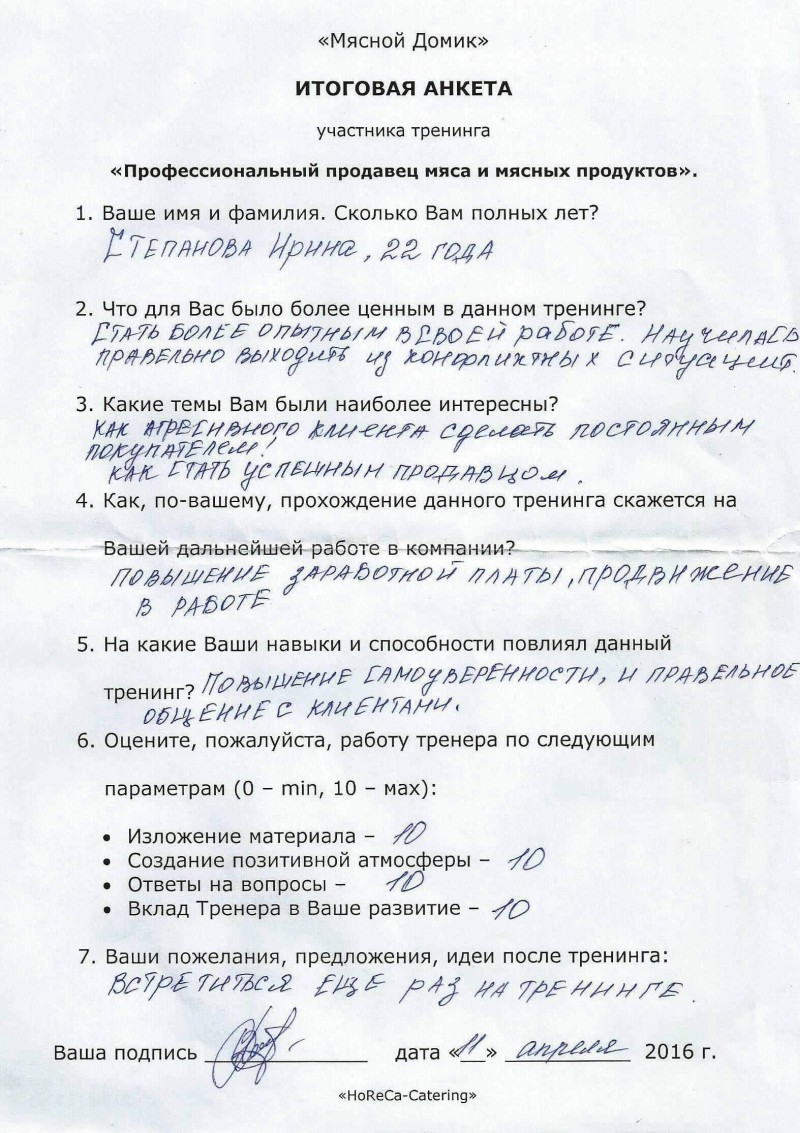 «Мясной Домик»
ИТОГОВАЯ АНКЕТА
участника тренинга
«Профессиональный продавец мяса и мясных продуктов».
1. Ваше имя и фамилия. Сколько Вам полных лет?
СТЕПАНОВА Ирина, 22 ГОДА
2. Что для Вас было более ценным в данном тренинге?
СТАТЬ БОЛЕЕ ОПЫТНЫМ В СВОЕЙ работЕ. НАУЧИЛАСЬ
ПРАВЕЛЬНО ВЫХОДИТЬ из КОНФЛИКТНЫХ СИТУАЦИЙ.
3. Какие темы Вам были наиболее интересны?
КАК АГРЕСИВНОГО КЛИЕНТА сделать ПОСТОЯННЫМ
ПОКУПАТЕЛЕМ!
КАК СТАТЬ УСПЕШНЫМ ПРОДАВЦОМ.
4. Как, по-вашему, прохождение данного тренинга скажется на
Вашей дальнейшей работе в компании?
ПОВЫШЕНИЕ ЗАРАБОТНОЙ ПЛАТЫ, ПРОДВИЖЕНИЕ
В РАБОТЕ
5. На какие Ваши навыки и способности повлиял данный
тренинг? ПОВЫШЕНИЕ САМОУВЕРЕННОСТИ, И ПРАВЕЛЬНОЕ
ОБЩЕНИЕ С КЛИЕНТАМИ.
6. Оцените, пожалуйста, работу тренера по следующим
параметрам (0 – min, 10 – мах):
• Изложение материала – 10
• Создание позитивной атмосферы – 10
• Ответы на вопросы – 10
• Вклад Тренера в Ваше развитие – 10
7. Ваши пожелания, предложения, идеи после тренинга:
ВСТРЕТИТЬСЯ ЕЩЕ РАЗ НА ТРЕНИНГЕ.
Ваша подпись ____________ дата «11» апреля 2016 г.
«HoReCa-Catering»